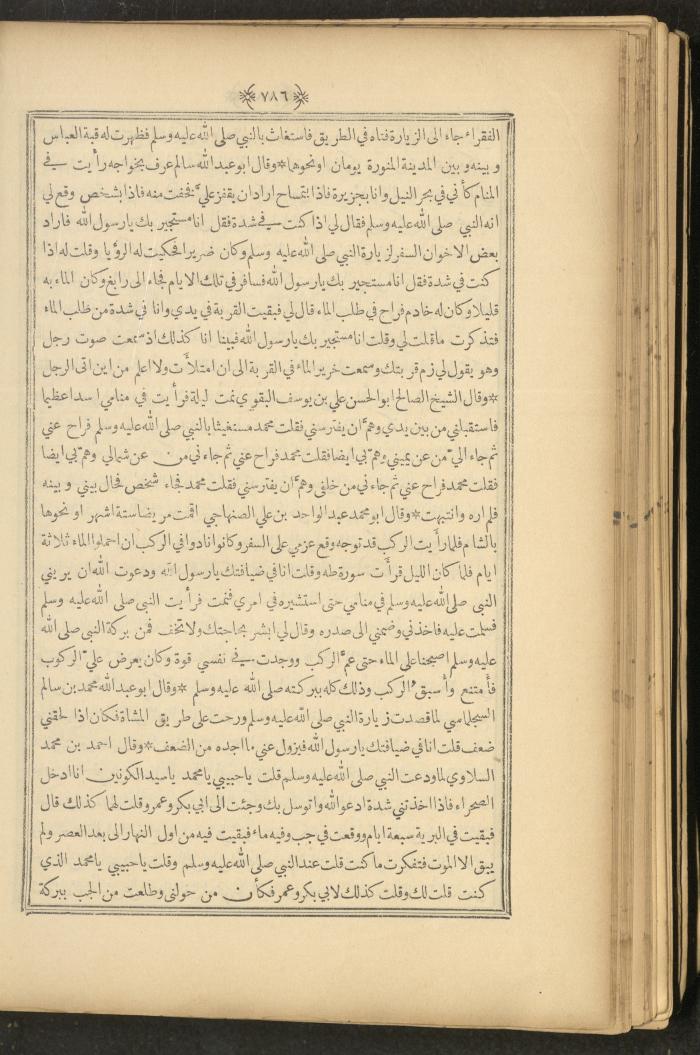 ﴿٧٨٦﴾
الفقراء جاء الى الزيارة فتاه في الطريق فاستغاث بالنبي صلى الله عليه وسلم فظهرت له قبة العباس
وبينه وبين المدينة المنورة يومان او نحوها * وقال ابو عبد الله سالم عرف بخواجه رأيت في
المنام كأني في بحر النيل وانا بجزيرة فاذا بتمساح اراد ان يقفز عليَّ فخفت منه فاذا بشخص وقع لي
انه النبي صلى الله عليه وسلم فقال لي اذا كنت في شدة فقل انا مستجير بك يا رسول الله فاراد
بعض الاخوان السفر لزيارة النبي صلى الله عليه وسلم وكان ضريرا فحكيت له الرؤيا وقلت له اذا
كنت في شدة فقل انا مستجير بك يا رسول الله فسافر في تلك الايام فجاء الى رابغ وكان الماء به
قليلا وكان له خادم فراح في طلب الماء قال لي فبقيت القربة في يدي وانا في شدة من طلب الماء
فتذكرت ما قلت لي وقلت انا مستجير بك يا رسول الله فبينا انا كذلك اذ سمعت صوت رجل
وهو يقول لي زم قربتك وسمعت خرير الماء في القربة الى ان امتلأت ولا اعلم من اين اتى الرجل
* وقال الشيخ الصالح ابو الحسن علي بن يوسف البقوي نمت ليلة فرأيت في منامي اسدا عظيما
فاستقبلني من بين يدي وهمَّ ان يفترسني فقلت محمد مستغيثا بالنبي صلى الله عليه وسلم فراح عني
ثم جاء اليَّ من عن يميني وهمَّ بي ايضا فقلت محمد فراح عني ثم جاءني من عن شمالي وهمَّ بي ايضا
فقلت محمد فراح عني ثم جاءني من خلفي وهمَّ ان يفترسني فقلت محمد فجاء شخص فحال بيني وبينه
فلم اره وانتبهت * وقال ابو محمد عبد الواحد بن علي الصنهاجي اقمت مريضا ستة اشهر او نحوها
بالشام فلما رأيت الركب قد توجه وقع عزمي على السفر وكانوا نادوا في الركب ان احملوا الماء ثلاثة
ايام فلما كان الليل قرأت سورة طه وقلت انا في ضيافتك يا رسول الله ودعوت الله ان يريني
النبي صلى الله عليه وسلم في منامي حتى استشيره في امري فنمت فرأيت النبي صلى الله عليه وسلم
فسلمت عليه فاخذني وضمني الى صدره وقال لي ابشر بحاجتك ولا تخف فمن بركة النبي صلى الله
عليه وسلم اصبحنا على الماء حتى عمَّ الركب ووجدت في نفسي قوة وكان يعرض عليَّ الركوب
فأمتنع وأسبق الركب وذلك كله ببركته صلى الله عليه وسلم * وقال ابو عبد الله محمد بن سالم
السجلماسي لما قصدت زيارة النبي صلى الله عليه وسلم ورحت على طريق المشاة فكان اذا لحقني
ضعف قلت انا في ضيافتك يا رسول الله فيزول عني ما اجده من الضعف * وقال احمد بن محمد
السلاوي لما ودعت النبي صلى الله عليه وسلم قلت يا حبيبي يا محمد يا سيد الكونين انا ادخل
الصحراء فاذا اخذتني شدة ادعو الله واتوسل بك وجئت الى ابي بكر وعمر وقلت لهما كذلك قال
فبقيت في البرية سبعة ايام ووقعت في جب وفيه ماء فبقيت فيه من اول النهار الى بعد العصر ولم
يبق الا الموت فتفكرت ما كنت قلت عند النبي صلى الله عليه وسلم وقلت يا حبيبي يا محمد الذي
كنت قلت لك وقلت كذلك لابي بكر وعمر فكأن من حولني وطلعت من الجب ببركة